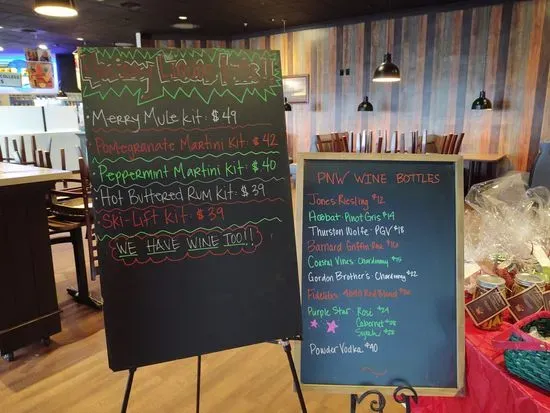 Merry Mule Kit: $49
Pomegranate Martini Kit: $42
Peppermint Martini Kit: $40
Hot Buttered Rum Kit: $39
Ski-Lift Kit: $39
WE HAVE WINE TOO!!
PNW WINE BOTTLES
Jones Riesling $12
Acrobat Pinot Gris $14
Thurston Wolfe PGV $18
Barnard Griffin Rosé
Coastal Vines Chardonnay
Gordon Brother's Chardonnay $22
Fidelitas Red Blend
Purple Star Rosé
Cabernet
Syrah
Powder Vodka $40